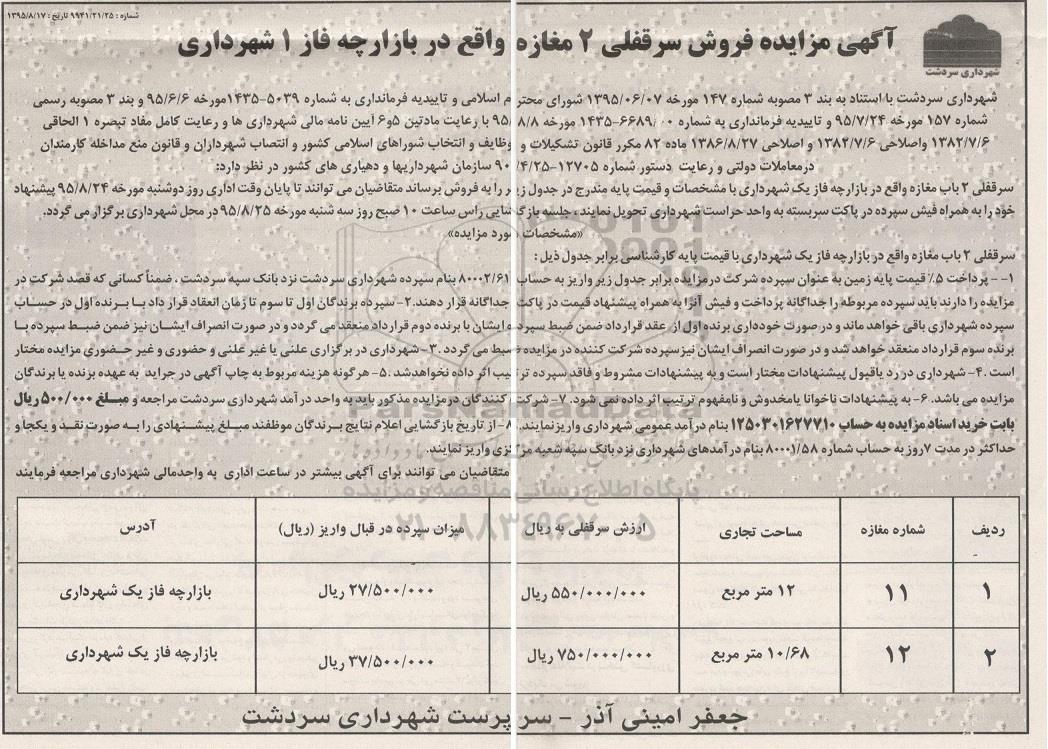 شماره : ۹۹۴۱/۲۱/۲۵ تاریخ : ۱۳۹۵/۸/۱۷
آگهی مزایده فروش سرقفلی ۲ مغازه واقع در بازارچه فاز ۱ شهرداری
شهرداری سردشت
شهرداری سردشت با استناد به بند ۳ مصوبه شماره ۱۴۷ مورخه ۱۳۹۵/۰۶/۰۷ شورای محترم اسلامی و تاییدیه فرمانداری به شماره ۵۰۳۹-۱۴۳۵مورخه ۹۵/۶/۶ و بند ۳ مصوبه رسمی
شماره ۱۵۷ مورخه ۹۵/۷/۲۴ و تاییدیه فرمانداری به شماره ۶۶۸۹-۱۴۳۵ مورخه ۸/۸/۹۵ با رعایت مادتین ۵و۶ آیین نامه مالی شهرداری ها و رعایت کامل مفاد تبصره ۱ الحاقی
۱۳۸۲/۷/۶ واصلاحی ۱۳۸۲/۷/۶ و اصلاحی ۱۳۸۶/۸/۲۷ ماده ۸۲ مکرر قانون تشکیلات و وظایف و انتخاب شوراهای اسلامی کشور و انتصاب شهرداران و قانون منع مداخله کارمندان
درمعاملات دولتی و رعایت دستور شماره ۱۲۷۰۵-۹۰/۴/۲۵ سازمان شهرداریها و دهیاری های کشور در نظر دارد:
سرقفلی ۲ باب مغازه واقع در بازارچه فاز یک شهرداری با مشخصات و قیمت پایه مندرج در جدول زیر را به فروش برساند متقاضیان می توانند تا پایان وقت اداری روز دوشنبه مورخه ۹۵/۸/۲۴ پیشنهاد
خود را به همراه فیش سپرده در پاکت سربسته به واحد حراست شهرداری تحویل نمایند ، جلسه بازگشایی راس ساعت ۱۰ صبح روز سه شنبه مورخه ۹۵/۸/۲۵ در محل شهرداری برگزار می گردد.
«مشخصات مورد مزایده»
سرقفلی ۲ باب مغازه واقع در بازارچه فاز یک شهرداری با قیمت پایه کارشناسی برابر جدول ذیل :
۱- - پرداخت ۵٪ قیمت پایه زمین به عنوان سپرده شرکت درمزایده برابر جدول زیر واریز به حساب ۸۰۰۰۲/۶۱ بنام سپرده شهرداری سردشت نزد بانک سپه سردشت ، ضمناً کسانی که قصد شرکت در
مزایده را دارند باید سپرده مربوطه را جداگانه پرداخت و فیش آنرا به همراه پیشنهاد قیمت در پاکت جداگانه قرار دهند. ۲- سپرده برندگان اول تا سوم تا زمان انعقاد قرار داد با برنده اول در حساب
سپرده شهرداری باقی خواهد ماند و در صورت خودداری برنده اول از عقد قرارداد ضمن ضبط سپرده ایشان با برنده دوم قرارداد منعقد می گردد و در صورت انصراف ایشان نیز ضمن ضبط سپرده با
برنده سوم قرارداد منعقد خواهد شد و در صورت انصراف ایشان نیزسپرده شرکت کننده در مزایده ضبط می گردد .۳- شهرداری در برگزاری علنی یا غیر علنی و حضوری و غیر حضوری مزایده مختار
است .۴- شهرداری در رد یاقبول پیشنهادات مختار است و به پیشنهادات مشروط و فاقد سپرده ترتیب اثر داده نخواهدشد .۵- هرگونه هزینه مربوط به چاپ آگهی در جراید به عهده برنده یا برندگان
مزایده می باشد. ۶- به پیشنهادات ناخوانا یامخدوش و نامفهوم ترتیب اثر داده نمی شود. ۷- شرکت کنندگان درمزایده مذکور باید به واحد در آمد شهرداری سردشت مراجعه و مبلغ ۵۰۰/۰۰۰ ریال
بابت خرید اسناد مزایده به حساب ۱۲۵۰۳۰۱۶۲۷۷۱۰ بنام درآمد عمومی شهرداری واریزنمایند. ۸- از تاریخ بازگشایی اعلام نتایج برندگان موظفند مبلغ پیشنهادی را به صورت نقد و یکجا و
حداکثر در مدت ۷روز به حساب شماره ۸۰۰۰۱/۵۸ بنام در آمدهای شهرداری نزد بانک سپه شعبه مرکزی واریز نمایند.
متقاضیان می توانند برای آگهی بیشتر در ساعت اداری به واحدمالی شهرداری مراجعه فرمایند
ParsNamadData
پایگاه اطلاع رسانی مناقصه و مزایده
۰۲۱-۸۸۳۴۹۶۷۰-۵
ردیف شماره مغازه مساحت تجاری ارزش سرقفلی به ریال میزان سپرده در قبال واریز (ریال) آدرس
۱ ۱۱ ۱۲ متر مربع ۵۵۰/۰۰۰/۰۰۰ ریال ۲۷/۵۰۰/۰۰۰ ریال بازارچه فاز یک شهرداری
۲ ۱۲ ۱۰/۶۸ متر مربع ۷۵۰/۰۰۰/۰۰۰ ریال ۳۷/۵۰۰/۰۰۰ ریال بازارچه فاز یک شهرداری
جعفر امینی آذر - سرپرست شهرداری سردشت